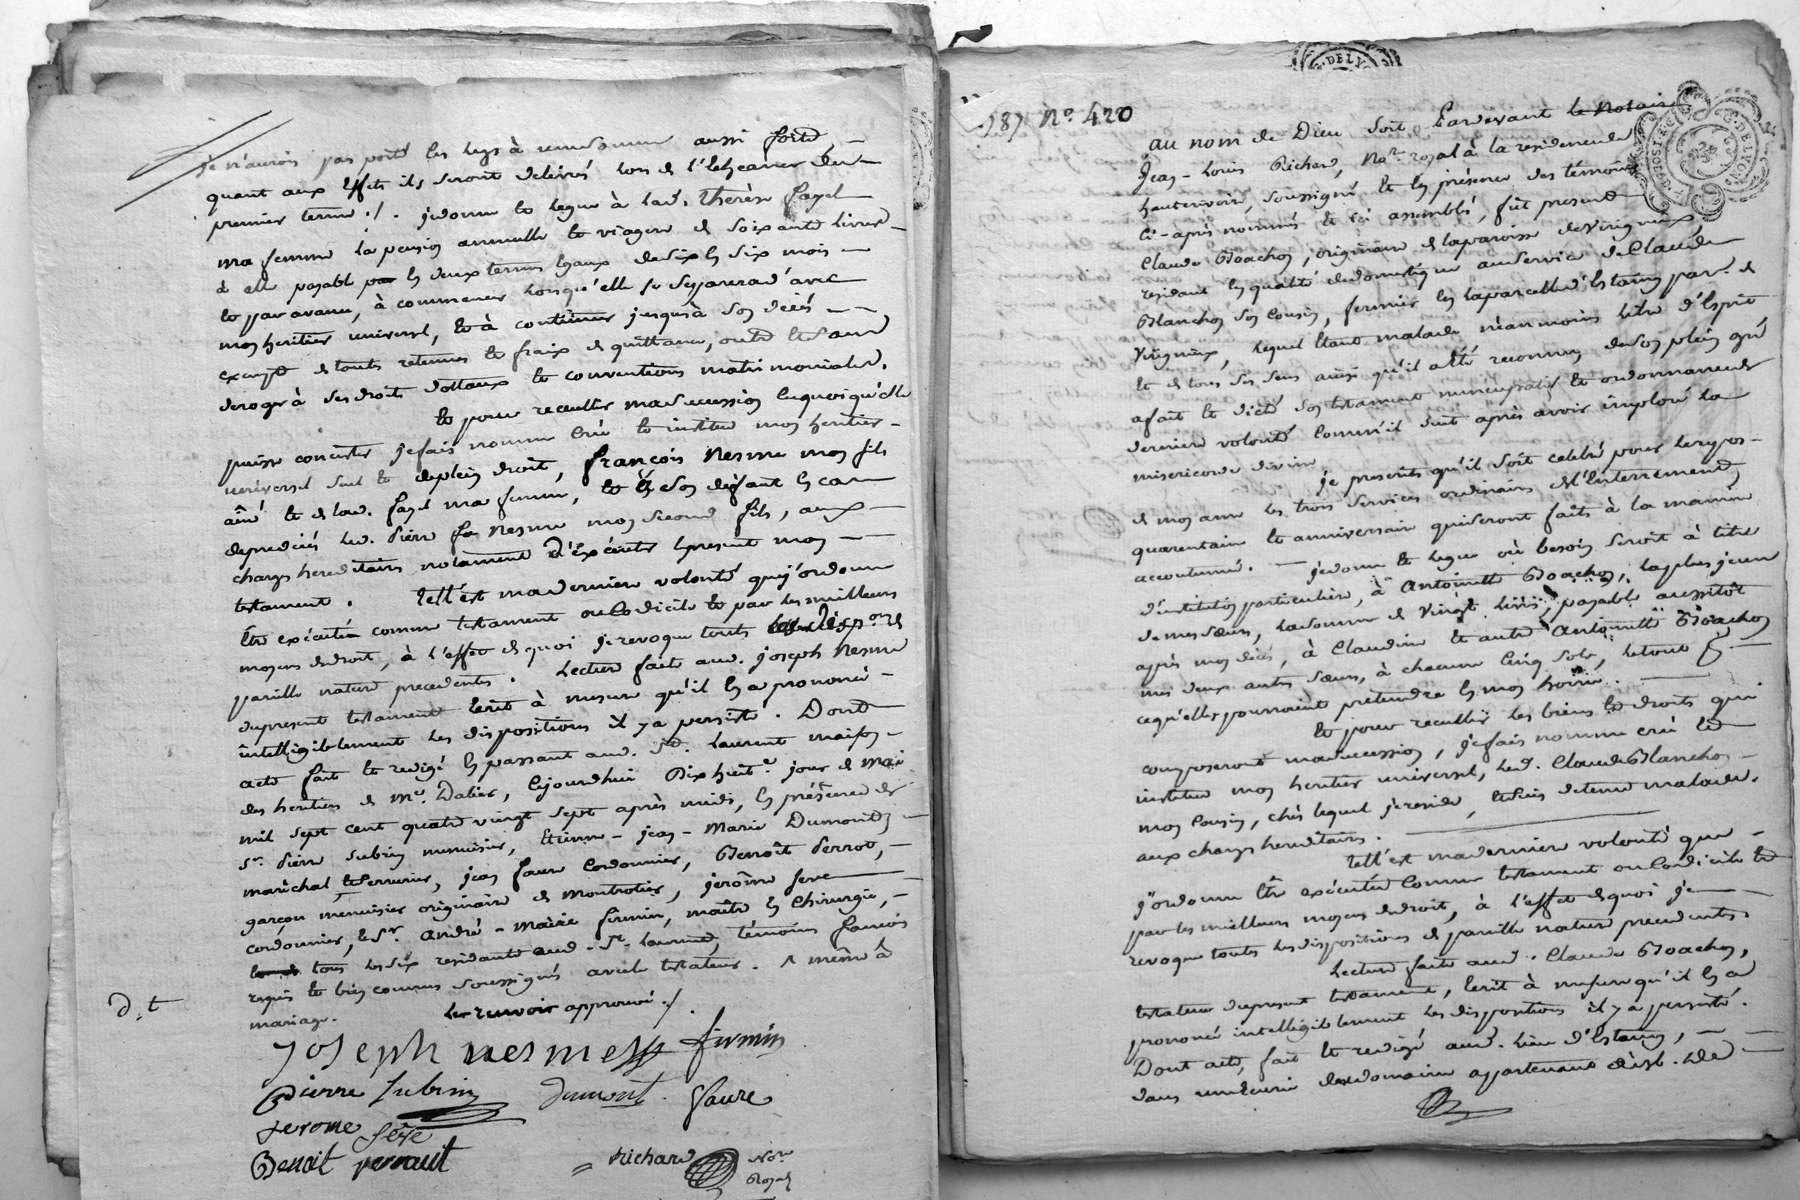 je n'aurois pas porté les legs à   aussi forte
quant aux effets ils seront delivrés lors de l'echeance du
premier terme ./. je donne et legue à lad. Therèse fayel
ma femme la pension annuelle et viagere de soixante livres
à elle payable en deux termes egaux de six en six mois
et par avance, à commencer lorsqu'elle se separera d'avec
mon heritier universel, et à continuer jusqu'à son décés
exempte de toutes retenues et fraix de quittance, outre et sans
deroger à ses droits dottaux et conventions matrimoniales.
et pour receuillir ma succession en quoi qu'elle
puisse concister je fais nomme crée et institue mon heritier
universel seul et de plein droit, françois Nesme mon fils
ainé et de lad. fayel ma femme, et en son defaut en cas
de predécés led. Pierre Nesme mon second fils, aux
charges hereditaires notament d'exécuter le present mon
testament. telle est ma derniere volonté que j'ordonne
être exécutée comme testament ou codicile et par les meilleurs
moyens de droit, à l'effet de quoi je revoque toutes disp.ons de
pareille nature precedentes. Lecture faite aud. joseph Nesme
du present testament ecrit à mesure qu'il en a prononcé
intelligiblement les dispositions il y a persisté. Dont
acte fait et redigé en passant aud. St. Laurent maison
des heritiers de Me. Dalier, cejourdhui dix huite. jour de mai
mil sept cent quatre vingt sept après midi, en présence de
Sr. Pierre Subrin menuisier, Etienne-jean-Marie Dumont
maréchal et serrurier, jean faure cordonnier, Benoît Perrot,
garçon menuisier originaire de Montrotier, jerôme seve
cordonnier, et Sr. André-Marie firmin, maître en chirurgie,
tous les six residants aud. St. Laurent, témoins
requis et bien connus soussignés avec le testateur. ^ même à
mariage. Le renvoi approuvé ./.
d. t
joseph nesme firmin
Pierre Subrin Dumont faure
Jerome Sève
Benoit perraut
Richard Nore. Royal
787 No. 420
au nom de Dieu soit Pardevant le Notaire
Jean-Louis Richard, Nore. royal à la residence de
hauterivoire, soussigné et en présence des témoins
ci-après nommés et ici assemblés, fût present
Claude Boachon, originaire de la paroisse de Virigneux,
residant en qualité de domestique au service de Claude
Blanchon son cousin, fermier en la parcelle d'Estaing par. de
Virigneux, lequel etant malade neanmoins libre d'Esprit
et de tous ses sens ainsi qu'il a été reconnu de son plein gré
a fait et dicté son testament nuncupatif et ordonnance de
derniere volonté comm'il suit après avoir imploré la
misericorde divine
je prescrits qu'il soit celebré pour le repos
de mon ame les trois services ordinaires de l'enterrement
quarantaine et anniversaire qui seront faits à la maniere
accoutumée. je donne et legue où besoin seroit à titre
d'institution particuliere, à Antoinette Boachon, la plus jeune
de mes sœurs, la somme de vingt livres, payable aussitôt
après mon décés, à Claudine et autre Antoinette Boachon
mes deux autres sœurs, à chacune cinq sols, le tout
ce qu'elles pourroient pretendre en mon hoirie.
et pour receuillir les biens et droits qui
composeront ma succession, je fais nomme crée et
institue mon heritier universel, led. Claude Blanchon
mon cousin, chés lequel je reside, et suis detenu malade,
aux charges hereditaires.
telle est ma derniere volonté que
j'ordonne être exécutée comme testament ou codicile et
par les meilleurs moyens de droit, à l'effet de quoi je
revoque toutes les dispositions de pareille nature precedentes
Lecture faite aud. Claude Boachon,
testateur du present testament, ecrit à mesure qu'il en a
prononcé intelligiblement les dispositions il y a persisté.
Dont acte, fait et redigé aud. lieu d'Estaing,
dans une Ecurie du domaine appartenant